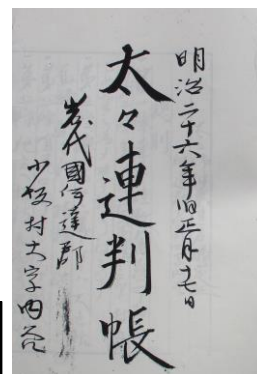 明治二十六年旧正月十七日
太々連判帳
岩代國伊達郡
小坂村大字内谷